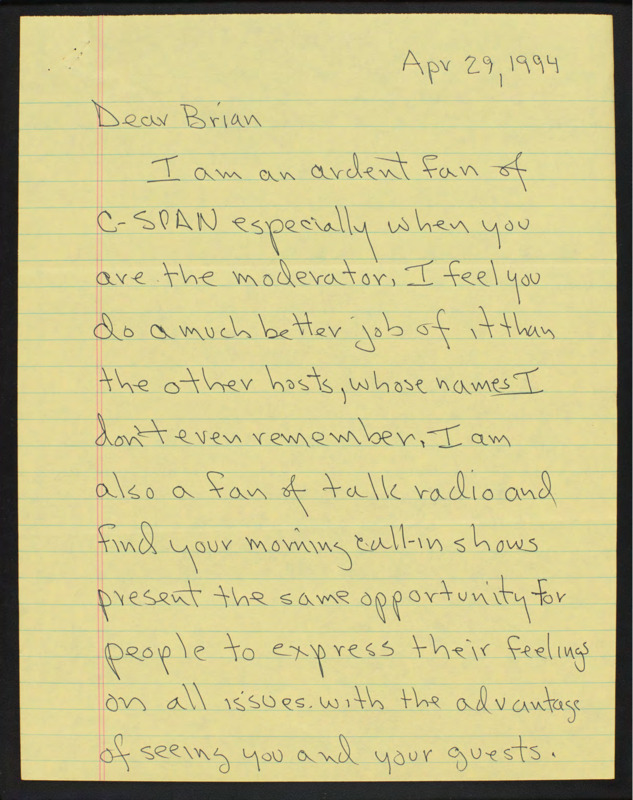 Apr 29, 1994
Dear Brian
I am an ardent fan of
C-SPAN especially when you
are the moderator. I feel you
do a much better job of it than
the other hosts, whose names I
don't even remember. I am
also a fan of talk radio and
find your morning call-in shows
present the same opportunity for
people to express their feelings
on all issues. with the advantage
of seeing you and your guests.